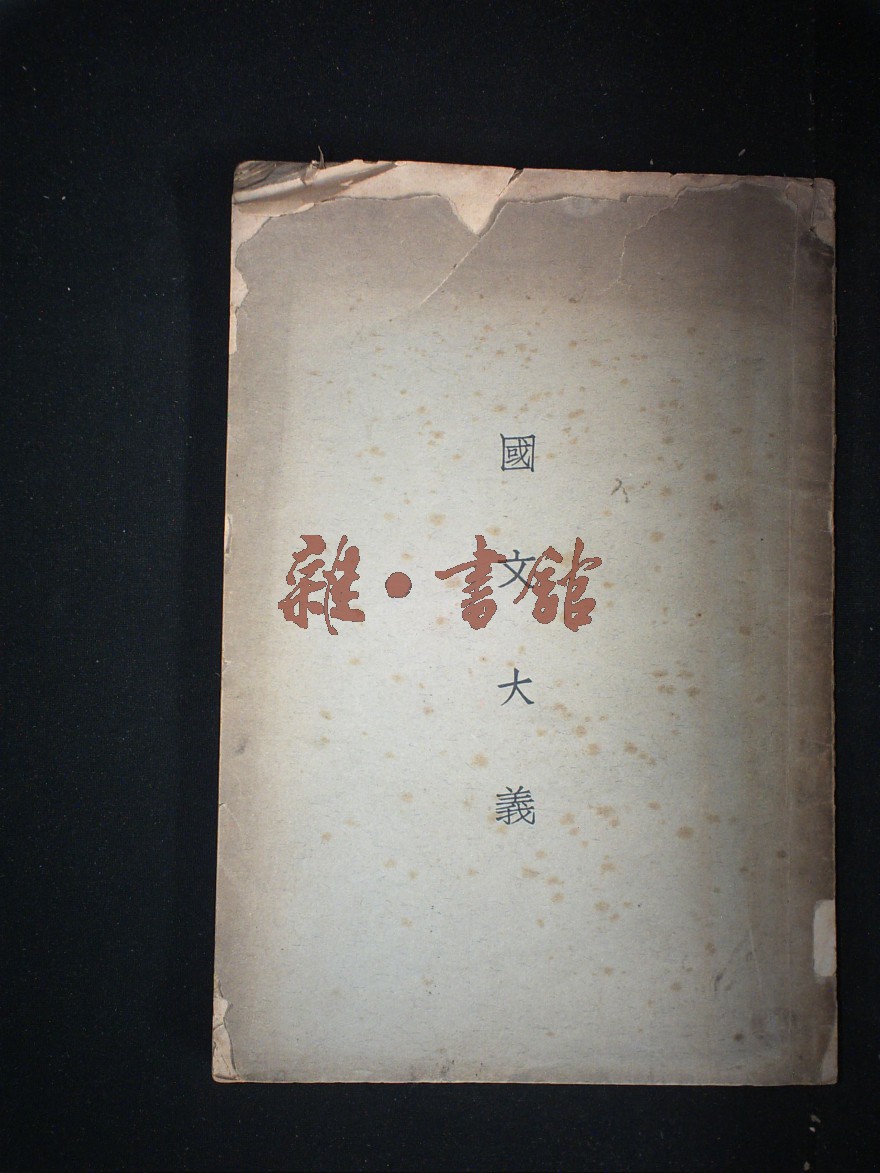 國文大義
雜·書館